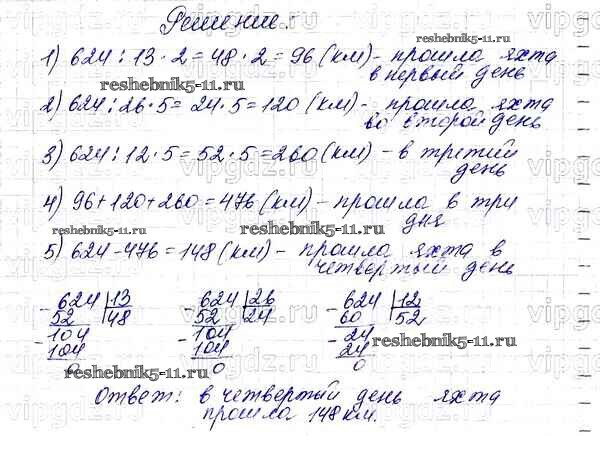 Решение:
1) 624 : 13 · 2 = 48 · 2 = 96 (км) - прошла яхта
в первый день
2) 624 : 26 · 5 = 24 · 5 = 120 (км) - прошла яхта
во второй день
3) 624 : 12 · 5 = 52 · 5 = 260 (км) - в третий
день
4) 96 + 120 + 260 = 476 (км) - прошла в три
дня
5) 624 - 476 = 148 (км) - прошла яхта в
четвертый день
624 | 13   624 | 26   624 | 12
52 | 48   52 | 24   60 | 52
104   104   24
104   104   24
0   0   0
Ответ: в четвертый день яхта
прошла 148 км.
reshebnik5-11.ru
reshebnik5-11.ru
reshebnik5-11.ru
reshebnik5-11.ru
reshebnik5-11.ru
reshebnik5-11.ru
reshebnik5-11.ru
vipgdz.ru